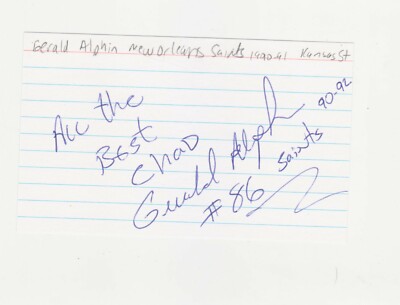 Gerald Alphin New Orleans Saints 1990-91 Kansas St
All the
Best
Chad
Gerald Alphin 90-92
#86 Saints